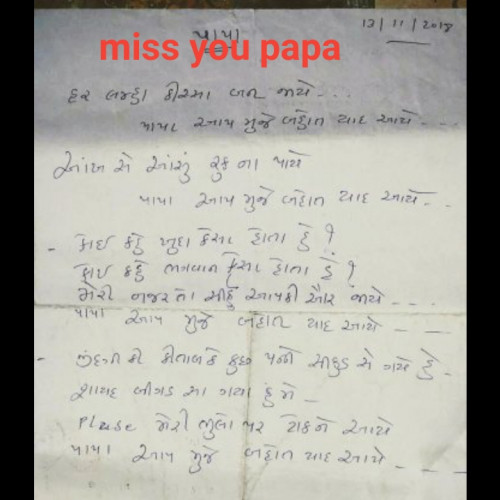 પાપા
13/11/2018
miss you papa
હર લમ્હા કીસ્સા બન જાયે...
પાપા આપ મુજે બહોત યાદ આયે...
આંખ સે આંસું રુક ના પાયે
પાપા આપ મુજે બહોત યાદ આયે..
- કોઈ કહે ખુદા કૈસા હોતા હૈ?
કોઈ કહે ભગવાન કૈસા હોતા હૈ?
મેરી નજરતો સીર્ફ આપકી ઔર જાયે---
પાપા આપ મુજે બહોત યાદ આયે---
- જીંદગી કી કીતાબકે કુછ પન્ને સીકુડ સે ગયે હૈ-
શાયદ બીગડ સા ગયા હું મે-
Please મેરી ભુલો પર ટોકને આયે
પાપા આપ મુજે બહોત યાદ આયે---